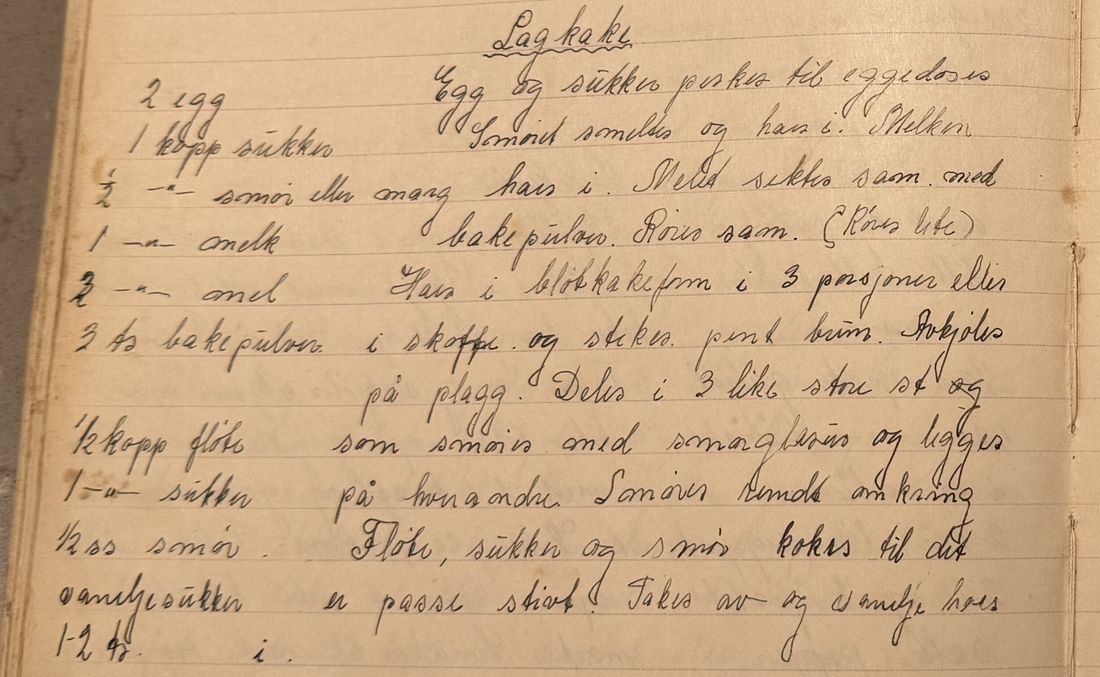 Lagkake
2 egg Egg og sukker piskes til eggedosis
1 kopp sukker Smøret smeltes og haes i. Melken
½ -"- smør eller marg haes i. Melet siktes sam. med
1 -"- melk bakepulver. Røres sam. (Røres lite)
3 -"- mel Haes i bløtkakeform i 3 porsjoner eller
3 ts bakepulver i skoffe og stekes pent brun. Avkjøles
på plagg. Deles i 3 like store st og
½ kopp fløte som smøres med og legges
1 -"- sukker på hverandre. Smøres rundt omkring
½ ss smør. Fløte, sukker og smør kokes til det
vaneljesukker er passe stivt. Takes av og vanelje haes
1-2 ts. i.